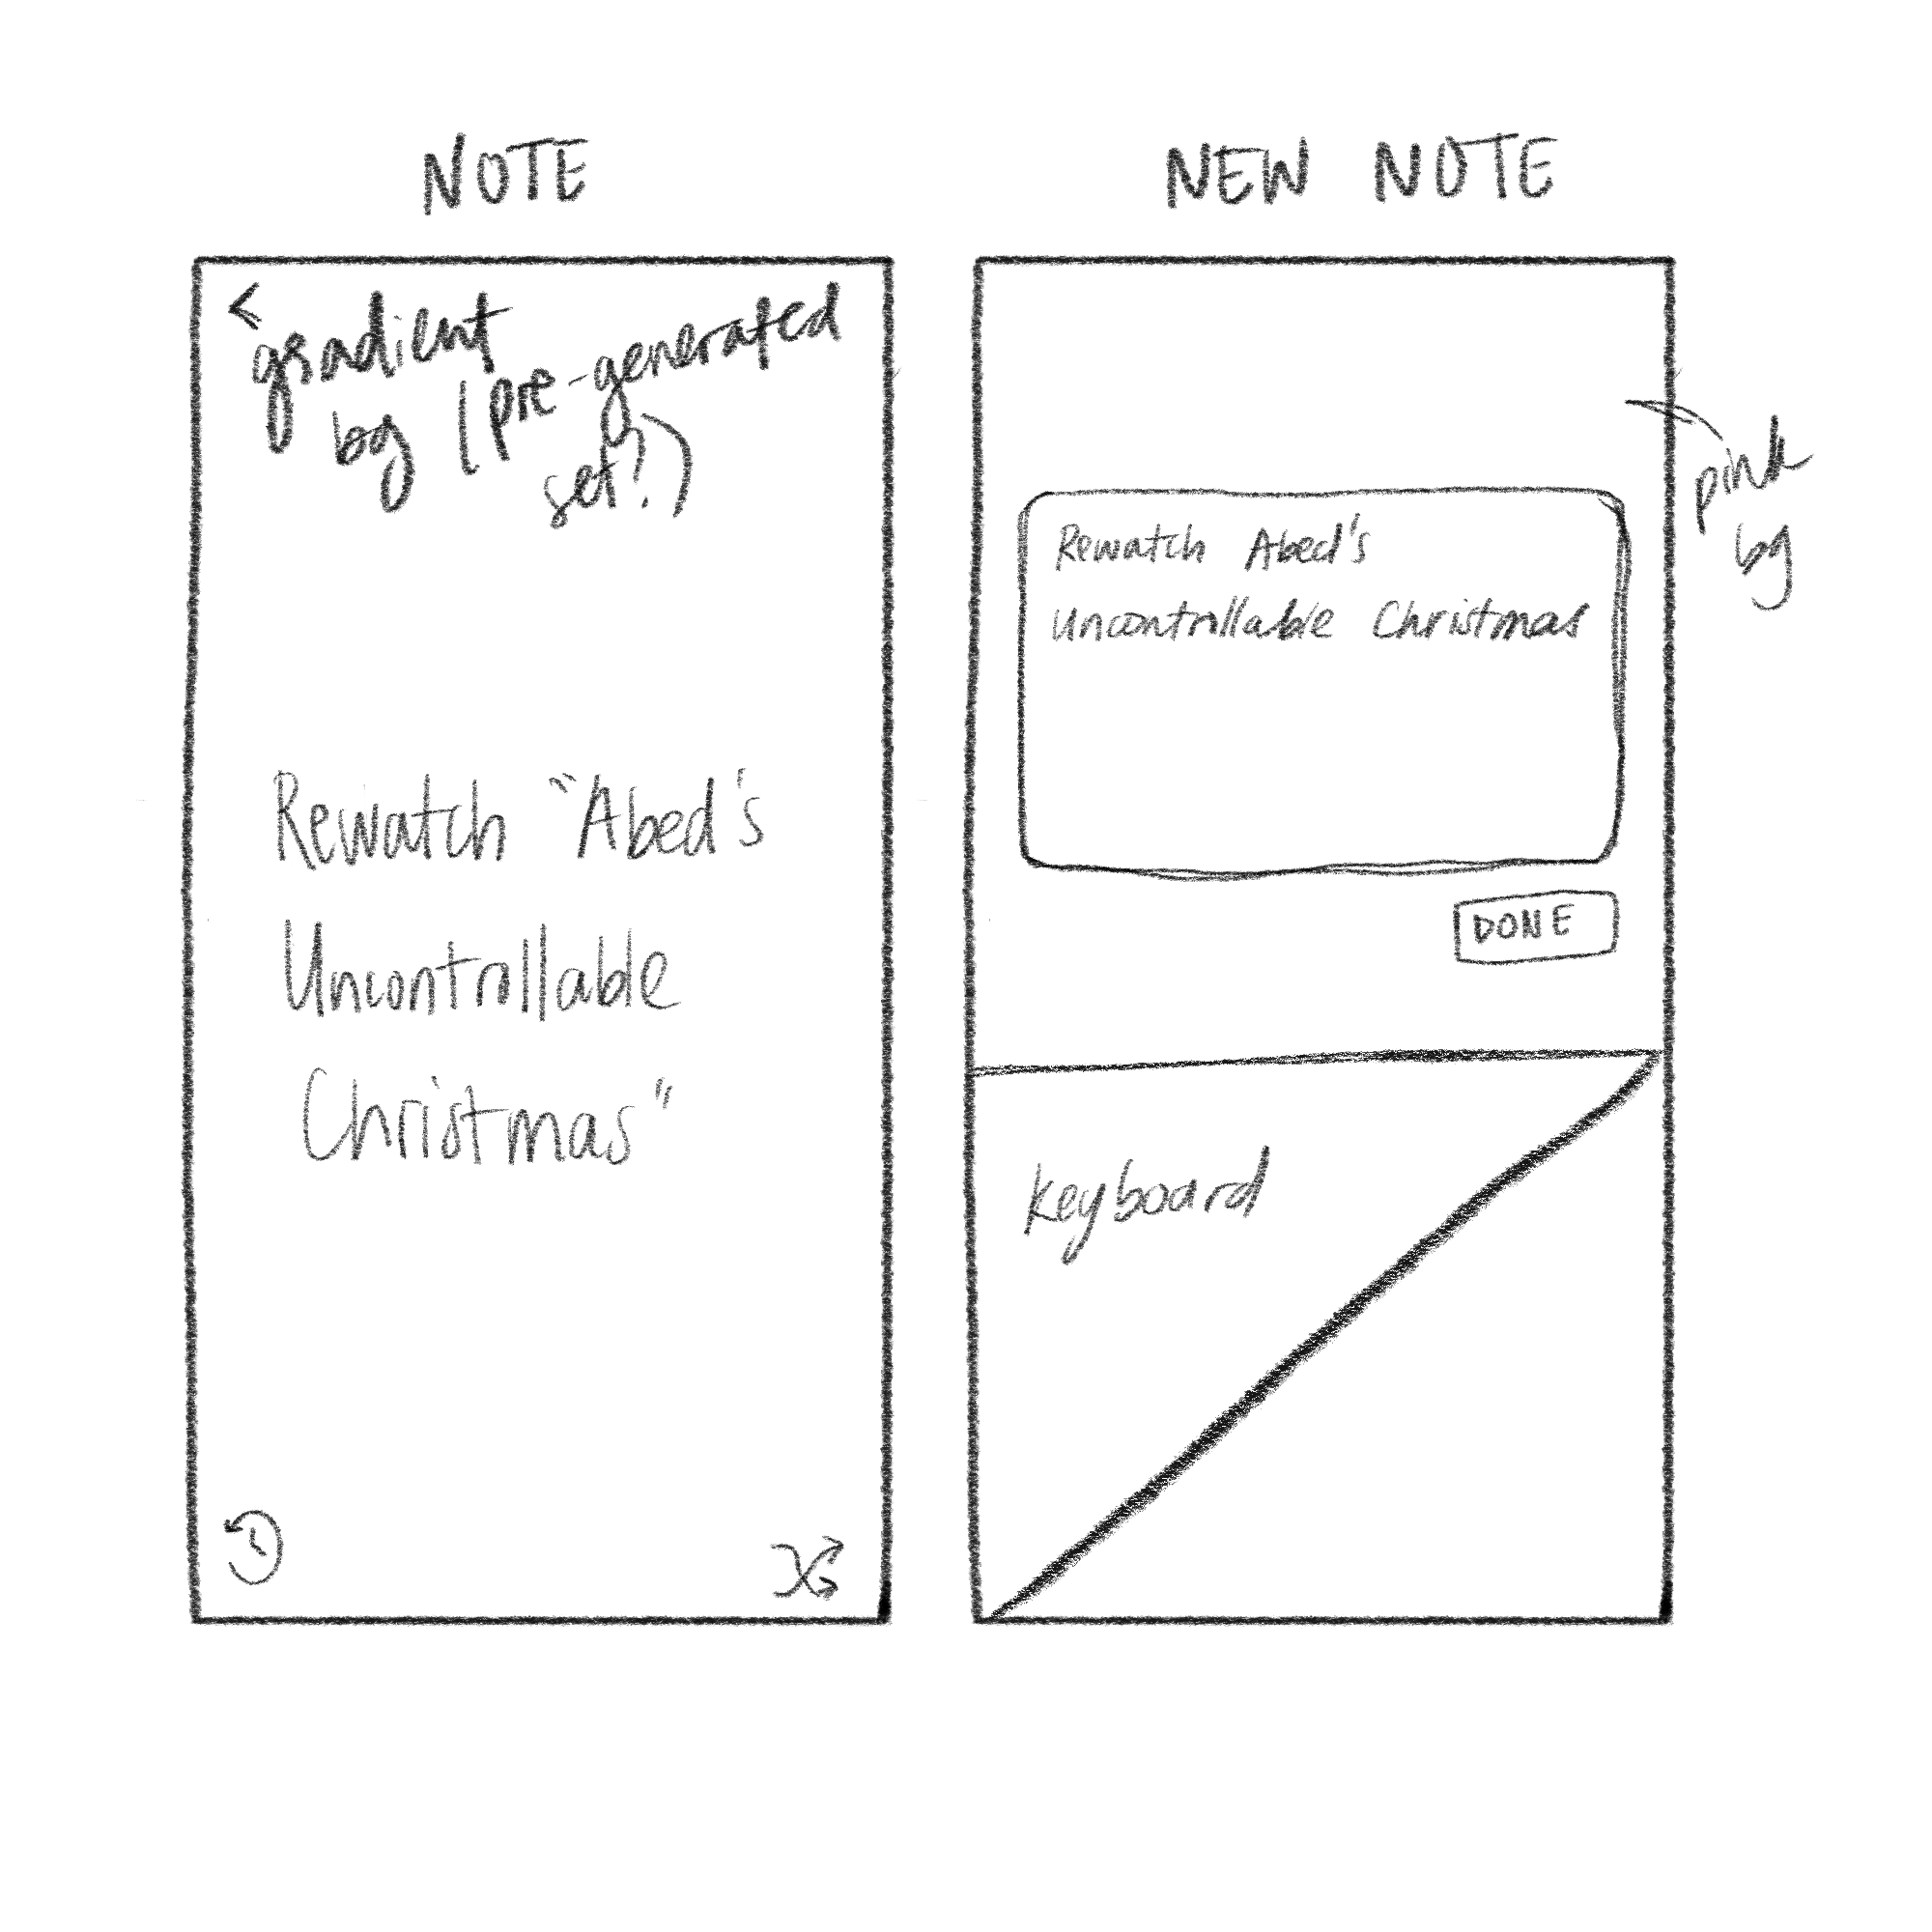 NOTE
<
gradient
bg (pre-generated
set?)
Rewatch "Abed's
Uncontrollable
Christmas"
NEW NOTE
Rewatch Abed's
Uncontrollable Christmas
DONE
keyboard
pink
bg